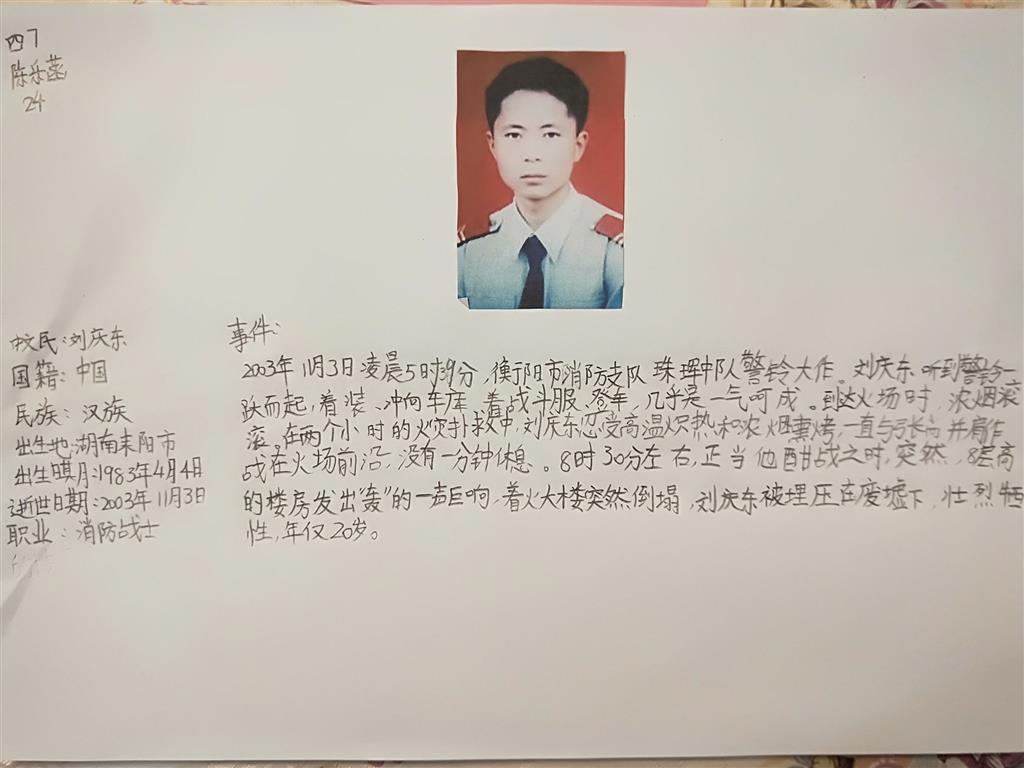 四7
陈乐菡
24
事件:
校民:刘庆东
国籍:中国
民族:汉族
出生地:湖南耒阳市
出生日期月:1983年4月4日
逝世日期:2003年11月3日
职业:消防战士
2003年11月3日凌晨5时39分,衡阳市消防支队珠珲中队警铃大作。刘庆东听到警铃一
跃而起,着装、冲向车库、着战斗服、登车,几乎是一气呵成。到达火场时,浓烟滚
滚。在两个小时的火灾扑救中,刘庆东忍受高温炽热和浓烟熏烤,一直与班长向并肩作
战在火场前沿,没有一分钟休息。8时30分左右,正当他酣战之时,突然,8层高
的楼房发出“轰”的一声巨响,着火大楼突然倒塌,刘庆东被埋压在废墟下,壮烈牺
牲,年仅20岁。